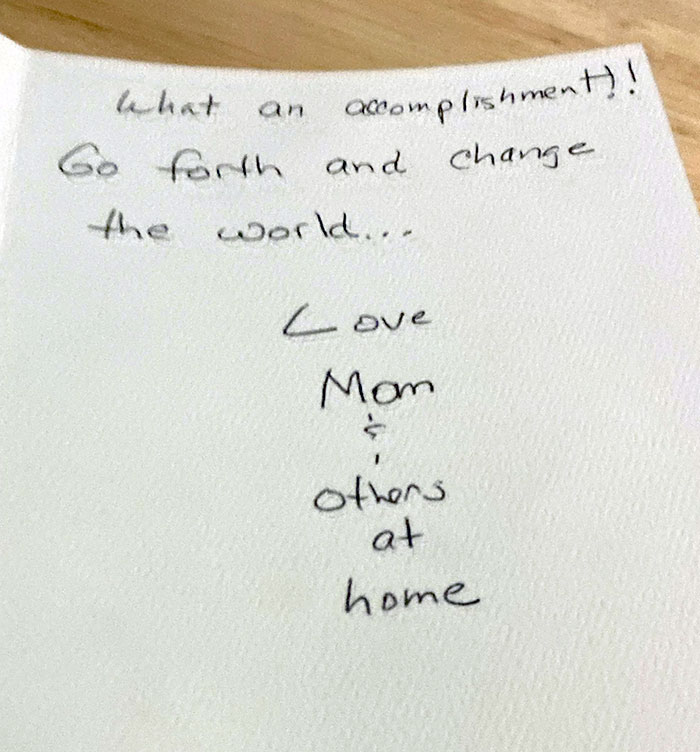 What an accomplishment!!
Go forth and change
the world...
Love
Mom
&
others
at
home